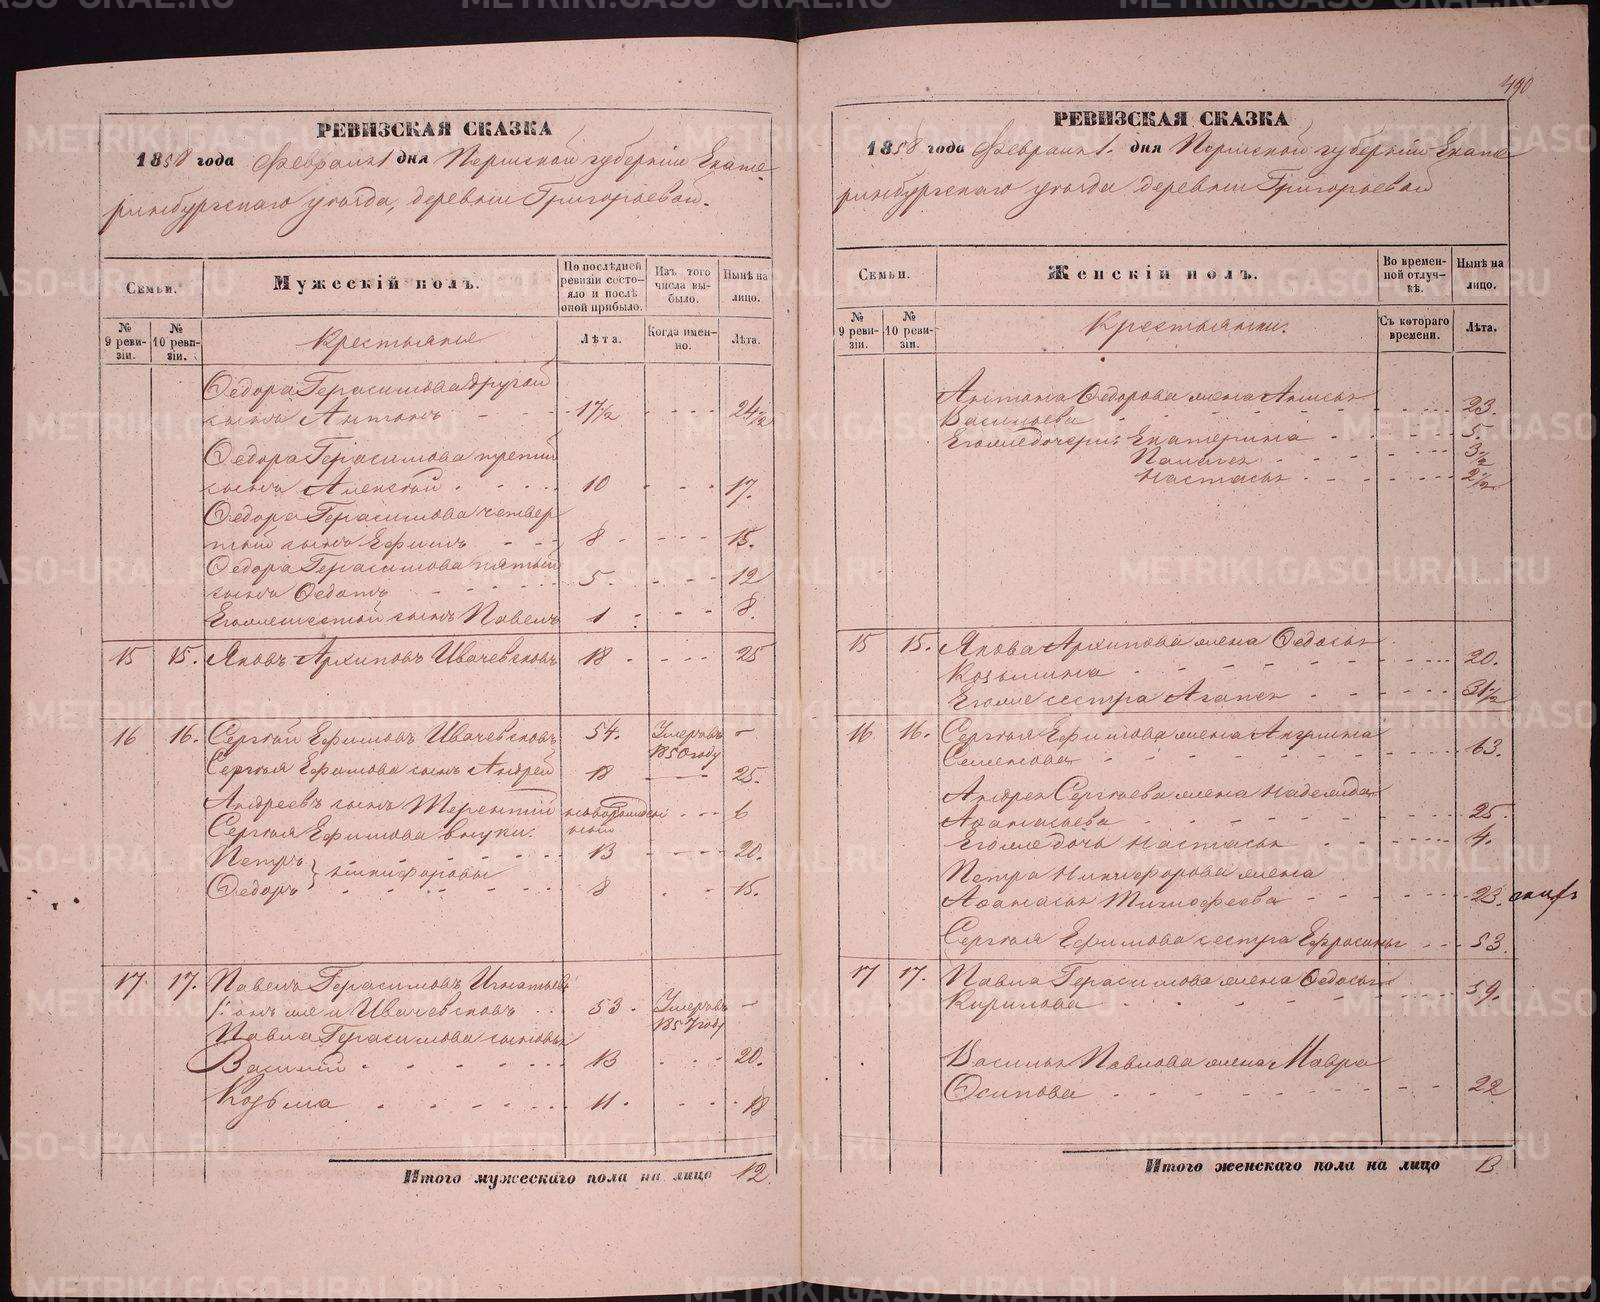 490
РЕВИЗСКАЯ СКАЗКА
1858 года Февраля 1 дня Пермской губерніи Екате-
ринбургскаго уѣзда, деревни Григорьевой.
Семьи.
Мужескій полъ.
По послѣдней ревизіи состо-яло и послѣ оной прибыло.
Изъ того числа вы-было.
Нынѣ на лицо.
№ 9 реви-зіи.
№ 10 реви-зіи.
Крестьяне
Лѣта.
Когда имен-но.
Лѣта.
Ѳедора Герасимова другой
сынъ Антонъ - - - 17½ - - - 24½
Ѳедора Герасимова третій
сынъ Алексѣй 10 - - - 17.
Ѳедора Герасимова четвер
тый сынъ Ефимъ 8 - - - 15.
Ѳедора Герасимова пятый
сынъ Ѳедотъ 5. - - - 12
Егоже шестой сынъ Павелъ 1 - - - 8.
15 15. Яковъ Архиповъ Ивачевсковъ 18 - - - 25
16 16. Сергѣй Ефимовъ Ивачевсковъ 54. Умеръ въ 1850 году -
Сергѣя Ефимова сынъ Андрей 18 - - - 25.
Андреевъ сынъ Терентій новорожден ный - - - 6
Сергѣя Ефимова внуки:
Петръ } Никифоровы 13 - - - 20.
Ѳедоръ 8 - - 15.
17 17. Павелъ Герасимовъ Игнатьевъ
/: онъ же и Ивачевсковъ 53 - Умеръ въ 1857 году -
Павла Герасимова сыновья
Василій - - - - - 13 - - - 20.
Козьма - - - - - 11 - - - - 18
Итого мужескаго пола на лицо 12.
РЕВИЗСКАЯ СКАЗКА
1858 года Февраля 1. дня Пермской губерніи Екате
ринбургскаго уѣзда деревни Григорьевой
Семьи.
Женскій полъ.
Во времен-ной отлуч-кѣ.
Нынѣ на лицо.
№ 9 реви-зіи.
№ 10 реви-зіи.
Крестьянки.
Съ котораго времени.
Лѣта.
Антона Ѳедорова жена Анисья
Васильева - - - 23.
Егоже дочери: Екатерина - - - 5.
Пелагея - - - 3½
Настасья - - - 2½
15 15. Якова Архипова жена Ѳедосья
Козьмина - - - 20.
Егоже сестра Агапея - - - 31½
16 16. Сергѣя Ефимова жена Акулина
Семенова - - - 63.
Андрея Сергѣева жена Надежда
Аѳанасьева - - - 25.
Егоже дочь Настасья - - - 4.
Петра Никифорова жена
Аѳанасья Тимофеева - - - 23.
Сергѣя Ефимова сестра Ефросинья - - 53
17 17. Павла Герасимова жена Ѳедосья
Кирилова - - - 59.
Василья Павлова жена Мавра
Осипова - - - 22
Итого женскаго пола на лицо 13
METRIKI.GASO-URAL.RU